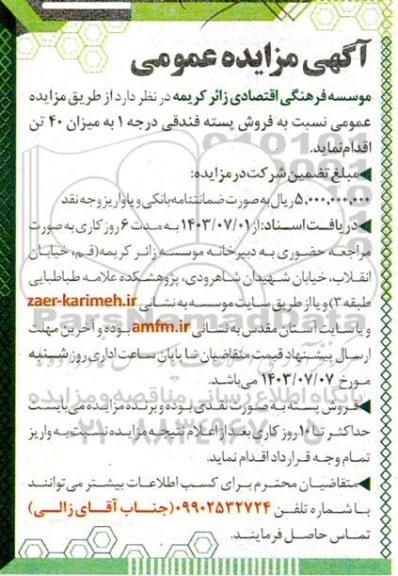 آگهی مزایده عمومی
موسسه فرهنگی اقتصادی زائر کریمه در نظر دارد از طریق مزایده
عمومی نسبت به فروش پسته فندقی درجه ۱ به میزان ۴۰ تن
اقدام نماید.
◀مبلغ تضمین شرکت در مزایده:
۵,۰۰۰,۰۰۰,۰۰۰ ریال به صورت ضمانتنامه بانکی و یا واریز وجه نقد
◀دریافت اسناد: از ۱۴۰۳/۰۷/۰۱ به مدت ۶ روز کاری به صورت
مراجعه حضوری به دبیرخانه موسسه زائر کریمه (قم، خیابان
انقلاب، خیابان شهیدان شاهرودی، پژوهشکده علامه طباطبایی
طبقه ۳) و یا از طریق سایت موسسه به نشانی zaer-karimeh.ir
و یا سایت آستان مقدس به نشانی amfm.ir بوده و آخرین مهلت
ارسال پیشنهاد قیمت متقاضیان تا پایان ساعت اداری روز شنبه
مورخ ۱۴۰۳/۰۷/۰۷ می‌باشد.
◀فروش پسته به صورت نقدی بوده و برنده مزایده می‌بایست
حداکثر تا ۱۰ روز کاری بعد از اعلام نتیجه مزایده نسبت به واریز
تمام وجه قرارداد اقدام نماید.
◀متقاضیان محترم برای کسب اطلاعات بیشتر می‌توانند
با شماره تلفن ۰۹۹۰۲۵۳۲۷۲۴ (جناب آقای زالی)
تماس حاصل فرمایند.
ParsNamadData
پایگاه اطلاع رسانی مناقصه و مزایده
۰۲۱-۸۸۳۴۹۶۷۰